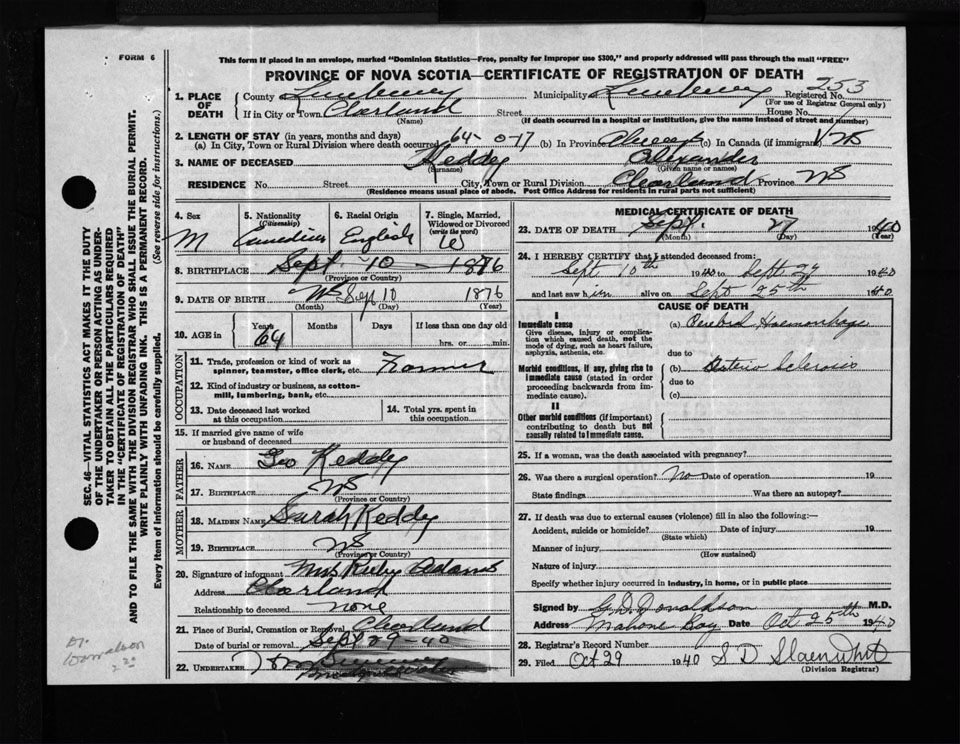 FORM 6
This form if placed in an envelope, marked "Dominion Statistics—Free, penalty for improper use $300," and properly addressed will pass through the mail "FREE"
PROVINCE OF NOVA SCOTIA—CERTIFICATE OF REGISTRATION OF DEATH
253
1. PLACE OF DEATH
County Lunenburg Municipality Lunenburg Registered No.
(For use of Registrar General only)
If in City or Town Clearland Street House No.
(Name) (If death occurred in a hospital or institution, give the name instead of street and number)
2. LENGTH OF STAY (in years, months and days)
(a) In City, Town or Rural Division where death occurred 64-0-17 (b) In Province Always (c) In Canada (if immigrant)
3. NAME OF DECEASED Keddy Alexander
(Surname) (Given name or names)
RESIDENCE No. Street City, Town or Rural Division Clearland Province NS
(Residence means usual place of abode. Post Office Address for residents in rural parts not sufficient)
4. Sex M
5. Nationality (Citizenship) Canadian
6. Racial Origin English
7. Single, Married, Widowed or Divorced (write the word)
8. BIRTHPLACE Sept 10 - 1876
(Province or Country)
9. DATE OF BIRTH NS Sep 10 1876
(Month) (Day) (Year)
10. AGE in Years 64 Months Days If less than one day old
hrs. or min.
OCCUPATION
11. Trade, profession or kind of work as spinner, teamster, office clerk, etc. Farmer
12. Kind of industry or business, as cotton-mill, lumbering, bank, etc.
13. Date deceased last worked at this occupation
14. Total yrs. spent in this occupation
15. If married give name of wife or husband of deceased
FATHER
16. NAME Geo Keddy
17. BIRTHPLACE NS
(Province or Country)
MOTHER
18. MAIDEN NAME Sarah Keddy
19. BIRTHPLACE NS
(Province or Country)
20. Signature of informant Mrs Ruby Adams
Address Clearland
Relationship to deceased none
21. Place of Burial, Cremation or Removal Clearland
Date of burial or removal Sept 29 - 40
22. UNDERTAKER
MEDICAL CERTIFICATE OF DEATH
23. DATE OF DEATH Sept 27 1940
(Month) (Day) (Year)
24. I HEREBY CERTIFY that I attended deceased from:
Sept 10th 1940 to Sept 27 1940
and last saw him alive on Sept 25th 1940
CAUSE OF DEATH
I
Immediate cause
Give disease, injury or complication which caused death, not the mode of dying, such as heart failure, asphyxia, asthenia, etc.
(a) Cerebral Haemorrhage
due to
Morbid conditions, if any, giving rise to immediate cause (stated in order proceeding backwards from immediate cause).
(b) Arterio Sclerosis
due to
(c)
II
Other morbid conditions (if important) contributing to death but not causally related to immediate cause.
25. If a woman, was the death associated with pregnancy?
26. Was there a surgical operation? No Date of operation 19
State findings Was there an autopsy?
27. If death was due to external causes (violence) fill in also the following:—
Accident, suicide or homicide? Date of injury 19
(State which)
Manner of injury
(How sustained)
Nature of injury
Specify whether injury occurred in industry, in home, or in public place
Signed by G.D. Donaldson M.D.
Address Mahone Bay Date Oct 25th 1940
28. Registrar's Record Number
29. Filed Oct 29 1940 S D Slaenwhit
(Division Registrar)
SEC. 46—VITAL STATISTICS ACT MAKES IT THE DUTY
OF THE UNDERTAKER OR PERSON ACTING AS UNDER-
TAKER TO OBTAIN ALL THE PARTICULARS REQUIRED
IN THE "CERTIFICATE OF DEATH"
AND TO FILE THE SAME WITH THE DIVISION REGISTRAR WHO SHALL ISSUE THE BURIAL PERMIT.
WRITE PLAINLY WITH UNFADING INK. THIS IS A PERMANENT RECORD.
Every item of information should be carefully supplied. (See reverse side for instructions.)
Dr.
Donaldson